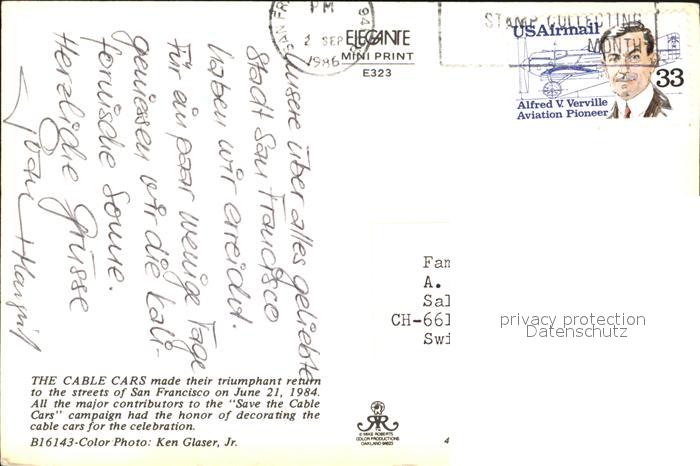 SAN FR
PM
2 SEP
1986
94
ELEGANTE
MINI PRINT
E323
STAMP COLLECTING
MONTH
USAirmail
33
Alfred V. Verville
Aviation Pioneer
Unsere über alles geliebte
Stadt San Francisco
haben wir erreicht.
Für ein paar wenige Tage
geniessen wir die kali-
fornische Sonne.
Herzliche Grüsse
Fam
A.
Sal
CH-661
Swi
privacy protection
Datenschutz
THE CABLE CARS made their triumphant return
to the streets of San Francisco on June 21, 1984.
All the major contributors to the "Save the Cable
Cars" campaign had the honor of decorating the
cable cars for the celebration.
B16143-Color Photo: Ken Glaser, Jr.
© MIKE ROBERTS
COLOR PRODUCTIONS
OAKLAND 94623
4